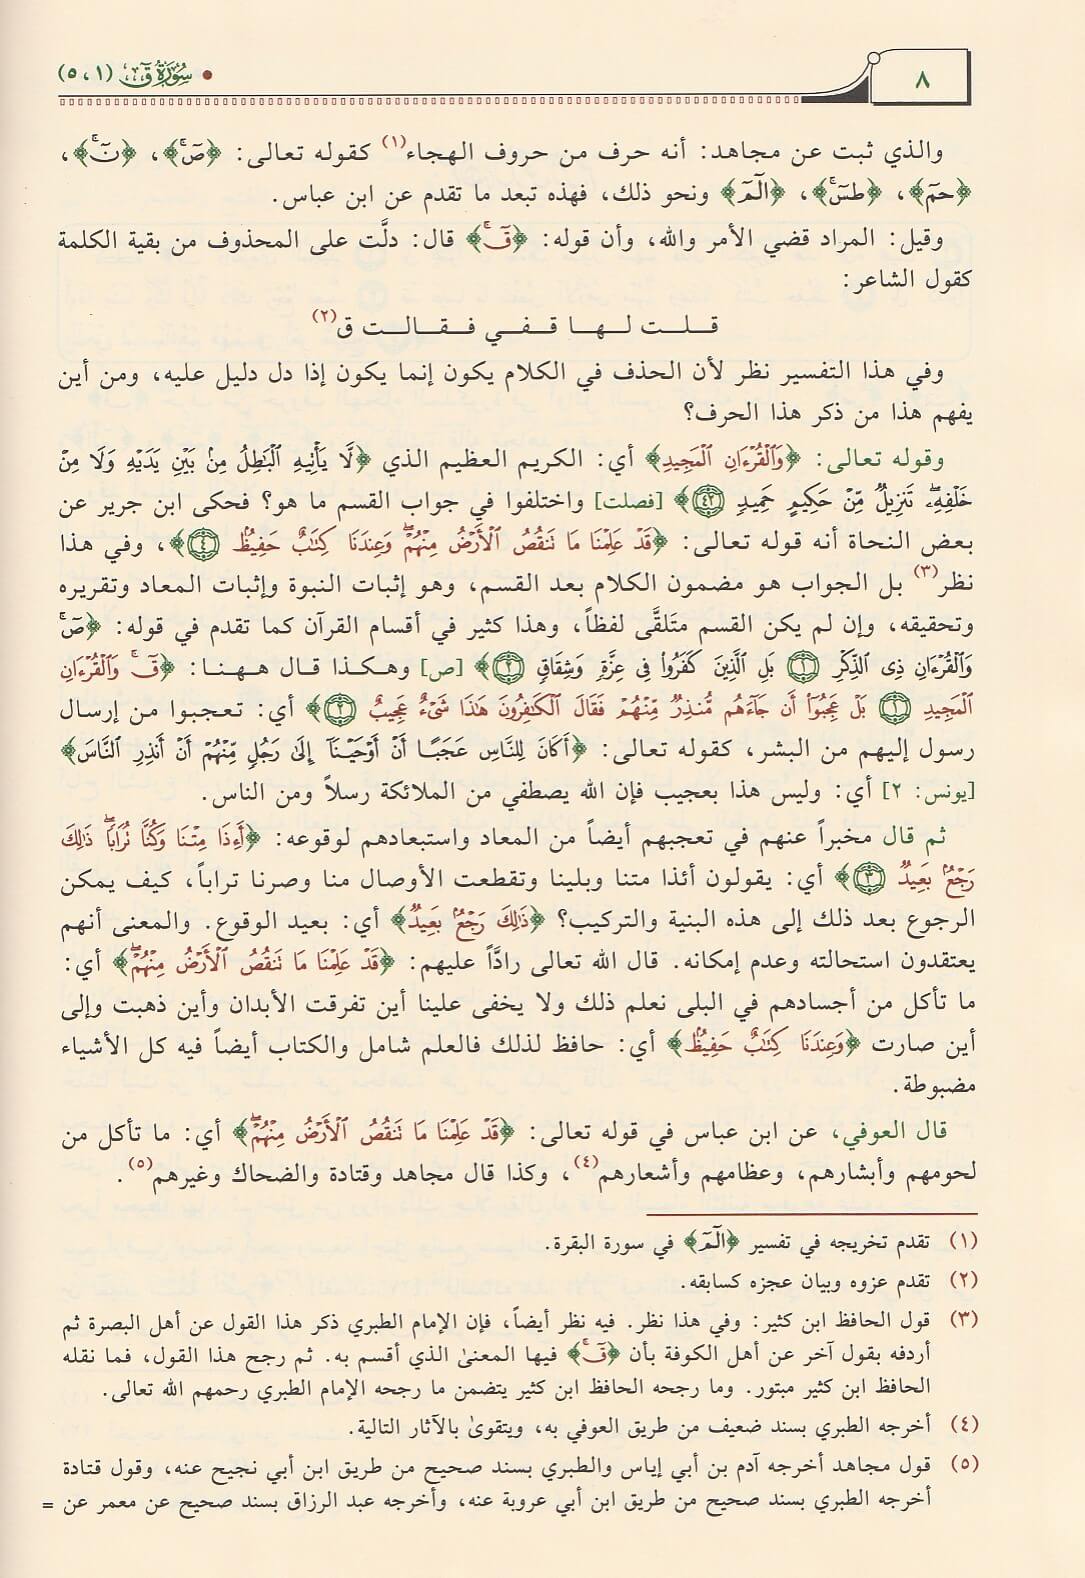 ٨
• سُورَةُ قٓ (١، ٥)
والذي ثبت عن مجاهد: أنه حرف من حروف الهجاء(١) كقوله تعالى: ﴿صٓۚ﴾، ﴿نٓۚ﴾،
﴿حمٓ﴾، ﴿طسٓۚ﴾، ﴿الٓمٓ﴾ ونحو ذلك، فهذه تبعد ما تقدم عن ابن عباس.
وقيل: المراد قضي الأمر والله، وأن قوله: ﴿قٓۚ﴾ قال: دلَّت على المحذوف من بقية الكلمة
كقول الشاعر:
قـلـت لـهـا قـفـي فـقـالـت ق(٢)
وفي هذا التفسير نظر لأن الحذف في الكلام يكون إنما يكون إذا دل دليل عليه، ومن أين
يفهم هذا من ذكر هذا الحرف؟
وقوله تعالى: ﴿وَٱلْقُرْءَانِ ٱلْمَجِيدِ﴾ أي: الكريم العظيم الذي ﴿لَّا يَأْتِيهِ ٱلْبَٰطِلُ مِنۢ بَيْنِ يَدَيْهِ وَلَا مِنْ
خَلْفِهِۦۖ تَنزِيلٌ مِّنْ حَكِيمٍ حَمِيدٍ ٤٢﴾ [فصلت] واختلفوا في جواب القسم ما هو؟ فحكى ابن جرير عن
بعض النحاة أنه قوله تعالى: ﴿قَدْ عَلِمْنَا مَا تَنقُصُ ٱلْأَرْضُ مِنْهُمْۖ وَعِندَنَا كِتَٰبٌ حَفِيظٌۢ ٤﴾، وفي هذا
نظر(٣) بل الجواب هو مضمون الكلام بعد القسم، وهو إثبات النبوة وإثبات المعاد وتقريره
وتحقيقه، وإن لم يكن القسم متَلقَّى لفظاً، وهذا كثير في أقسام القرآن كما تقدم في قوله: ﴿صٓۚ
وَٱلْقُرْءَانِ ذِى ٱلذِّكْرِ ١ بَلِ ٱلَّذِينَ كَفَرُوا۟ فِى عِزَّةٍ وَشِقَاقٍ ٢﴾ [ص] وهكذا قال ههنا: ﴿قٓۚ وَٱلْقُرْءَانِ
ٱلْمَجِيدِ ١ بَلْ عَجِبُوٓا۟ أَن جَآءَهُم مُّنذِرٌ مِّنْهُمْ فَقَالَ ٱلْكَٰفِرُونَ هَٰذَا شَىْءٌ عَجِيبٌ ٢﴾ أي: تعجبوا من إرسال
رسول إليهم من البشر، كقوله تعالى: ﴿أَكَانَ لِلنَّاسِ عَجَبًا أَنْ أَوْحَيْنَآ إِلَىٰ رَجُلٍ مِّنْهُمْ أَنْ أَنذِرِ ٱلنَّاسَ﴾
[يونس: ٢] أي: وليس هذا بعجيب فإن الله يصطفي من الملائكة رسلاً ومن الناس.
ثم قال مخبراً عنهم في تعجبهم أيضاً من المعاد واستبعادهم لوقوعه: ﴿أَءِذَا مِتْنَا وَكُنَّا تُرَابًاۖ ذَٰلِكَ
رَجْعٌۢ بَعِيدٌ ٣﴾ أي: يقولون أئذا متنا وبلينا وتقطعت الأوصال منا وصرنا تراباً، كيف يمكن
الرجوع بعد ذلك إلى هذه البنية والتركيب؟ ﴿ذَٰلِكَ رَجْعٌۢ بَعِيدٌ﴾ أي: بعيد الوقوع. والمعنى أنهم
يعتقدون استحالته وعدم إمكانه. قال الله تعالى رادَّاً عليهم: ﴿قَدْ عَلِمْنَا مَا تَنقُصُ ٱلْأَرْضُ مِنْهُمْۖ﴾ أي:
ما تأكل من أجسادهم في البلى نعلم ذلك ولا يخفى علينا أين تفرقت الأبدان وأين ذهبت وإلى
أين صارت ﴿وَعِندَنَا كِتَٰبٌ حَفِيظٌۢ﴾ أي: حافظ لذلك فالعلم شامل والكتاب أيضاً فيه كل الأشياء
مضبوطة.
قال العوفي، عن ابن عباس في قوله تعالى: ﴿قَدْ عَلِمْنَا مَا تَنقُصُ ٱلْأَرْضُ مِنْهُمْۖ﴾ أي: ما تأكل من
لحومهم وأبشارهم، وعظامهم وأشعارهم(٤)، وكذا قال مجاهد وقتادة والضحاك وغيرهم(٥).
(١) تقدم تخريجه في تفسير ﴿الٓمٓ﴾ في سورة البقرة.
(٢) تقدم عزوه وبيان عجزه كسابقه.
(٣) قول الحافظ ابن كثير: وفي هذا نظر. فيه نظر أيضاً، فإن الإمام الطبري ذكر هذا القول عن أهل البصرة ثم
أردفه بقول آخر عن أهل الكوفة بأن ﴿قٓۚ﴾ فيها المعنىٰ الذي أقسم به. ثم رجح هذا القول، فما نقله
الحافظ ابن كثير مبتور. وما رجحه الحافظ ابن كثير يتضمن ما رجحه الإمام الطبري رحمهم الله تعالى.
(٤) أخرجه الطبري بسند ضعيف من طريق العوفي به، ويتقوىٰ بالآثار التالية.
(٥) قول مجاهد أخرجه آدم بن أبي إياس والطبري بسند صحيح من طريق ابن أبي نجيح عنه، وقول قتادة
أخرجه الطبري بسند صحيح من طريق ابن أبي عروبة عنه، وأخرجه عبد الرزاق بسند صحيح عن معمر عن =